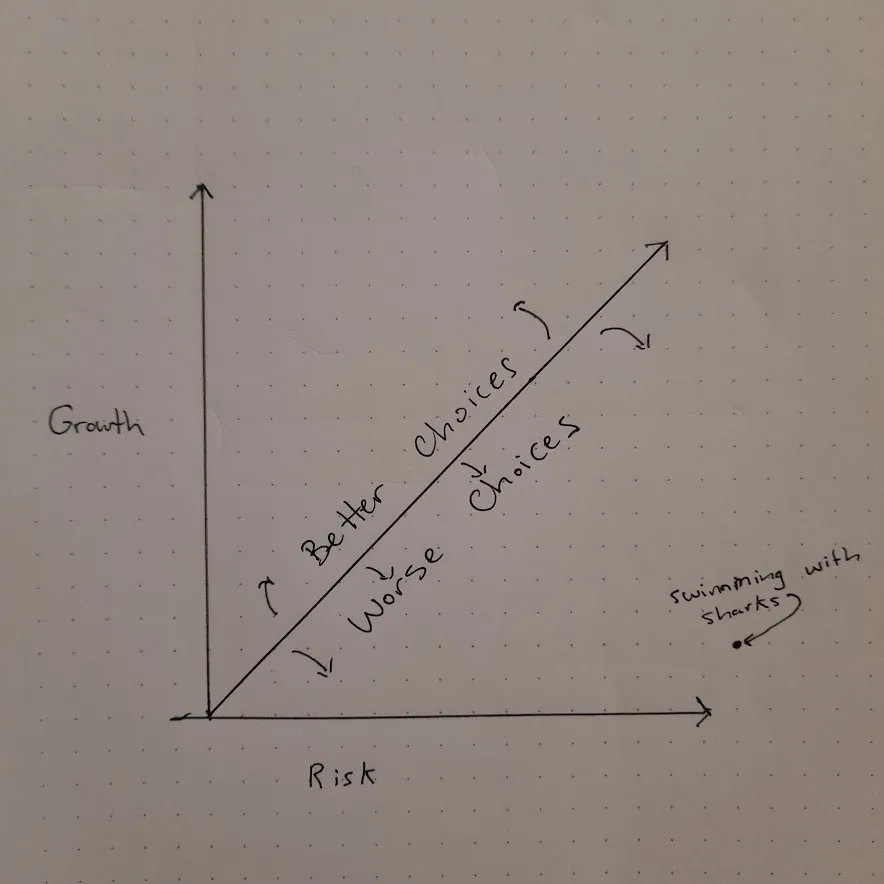 Growth
Better Choices
Worse Choices
swimming with
sharks
Risk